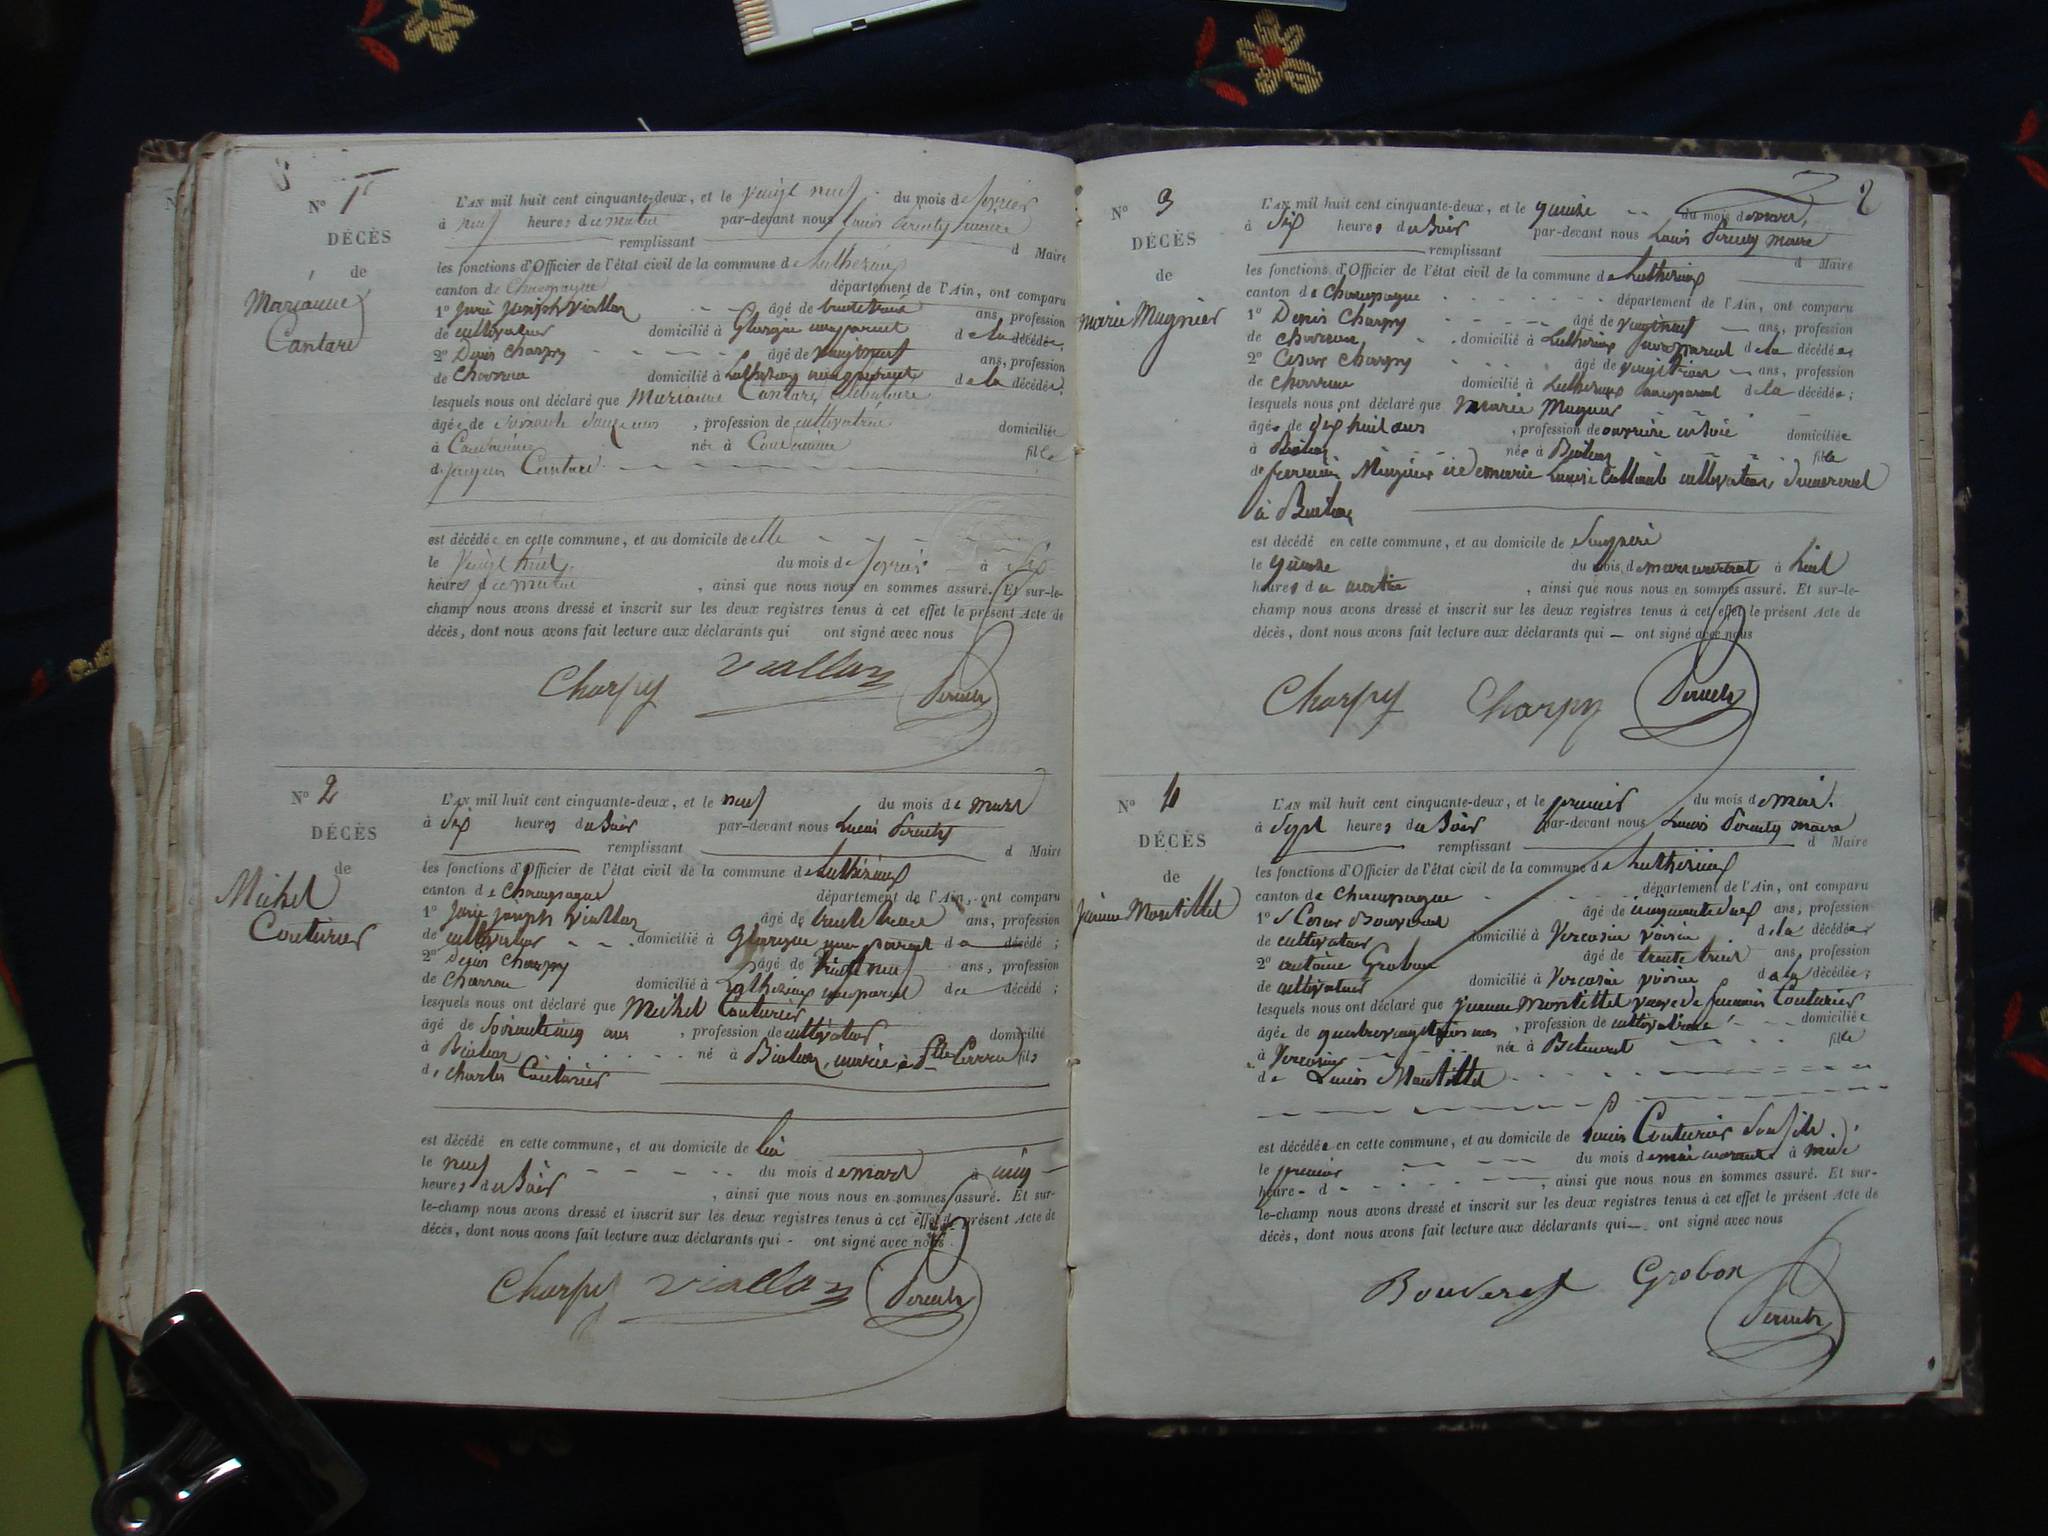 N° 1er
DÉCÈS
de
Marianne
Cantare
L'AN mil huit cent cinquante-deux, et le vingt neuf du mois de fevrier
à neuf heures du matin par-devant nous Louis maire
remplissant d Maire
les fonctions d'Officier de l'état civil de la commune de Luthézieu
canton de Champagne département de l'Ain, ont comparu
1° joseph Viallon âgé de trente trois ans, profession
de cultivateur domicilié à non parent de la décédée,
2° Denis Charpy âgé de vingt neuf ans, profession
de charron domicilié à Luthezieu non parent de la décédée,
lesquels nous ont déclaré que Marianne Cantare célibataire
âgée de soixante ans, profession de cultivatrice domiciliée
à née à fille
de jacques Cantare
est décédée en cette commune, et au domicile de elle
le vingt huit du mois de fevrier à six
heures du matin, ainsi que nous nous en sommes assuré. Et sur-le-
champ nous avons dressé et inscrit sur les deux registres tenus à cet effet le présent Acte de
décès, dont nous avons fait lecture aux déclarants qui ont signé avec nous
Charpy Viallon
N° 2
DÉCÈS
de
Michel
Couturier
L'AN mil huit cent cinquante-deux, et le neuf du mois de mars
à six heures du soir par-devant nous Louis
remplissant d Maire
les fonctions d'Officier de l'état civil de la commune de Luthézieu
canton de Champagne département de l'Ain, ont comparu
1° joseph Viallon âgé de trente ans, profession
de cultivateur domicilié à non parent du décédé;
2° Denis Charpy âgé de vingt neuf ans, profession
de charron domicilié à Luthezieu non parent du décédé;
lesquels nous ont déclaré que Michel Couturier
âgé de soixante cinq ans, profession de cultivateur domicilié
à né à marié à fils
de Charles Couturier
est décédé en cette commune, et au domicile de lui
le neuf du mois de mars à cinq
heures du soir, ainsi que nous nous en sommes assuré. Et sur-
le-champ nous avons dressé et inscrit sur les deux registres tenus à cet effet le présent Acte de
décès, dont nous avons fait lecture aux déclarants qui - ont signé avec nous.
Charpy Viallon
2
N° 3
DÉCÈS
de
Marie Mugnier
L'AN mil huit cent cinquante-deux, et le quinze du mois de mars
à six heures du soir par-devant nous Louis maire
remplissant d Maire
les fonctions d'Officier de l'état civil de la commune de Luthezieu
canton de Champagne département de l'Ain, ont comparu
1° Denis Charpy âgé de vingt neuf ans, profession
de charron domicilié à Luthezieu non parent de la décédée,
2° Cesar Charpy âgé de vingt trois ans, profession
de charron domicilié à Luthezieu non parent de la décédée;
lesquels nous ont déclaré que Marie Mugnier
âgée de dix huit ans, profession de ouvrière en soie domiciliée
à née à fille
de Mugnier et de marie Louise cultivateurs demeurant
à
est décédé en cette commune, et au domicile de son père
le quinze du mois de mars courant à huit
heures du matin, ainsi que nous nous en sommes assuré. Et sur-le-
champ nous avons dressé et inscrit sur les deux registres tenus à cet effet le présent Acte de
décès, dont nous avons fait lecture aux déclarants qui — ont signé avec nous
Charpy Charpy
N° 4
DÉCÈS
de
jeanne Montillet
L'AN mil huit cent cinquante-deux, et le premier du mois de mai
à sept heures du soir par-devant nous Louis maire
remplissant d Maire
les fonctions d'Officier de l'état civil de la commune de Luthezieu
canton de Champagne département de l'Ain, ont comparu
1° Cesar Bouveret âgé de ans, profession
de cultivateur domicilié à Vercosin voisin de la décédée
2° antoine Grobon âgé de trente trois ans, profession
de cultivateur domicilié à Vercosin voisin de la décédée;
lesquels nous ont déclaré que jeanne Montillet veuve de Couturier
âgée de quatre vingt ans, profession de cultivatrice domiciliée
à Vercosin née à fille
de Louis Montillet
est décédée en cette commune, et au domicile de Louis Couturier son fils
le premier du mois de mai courant à midi
heure d, ainsi que nous nous en sommes assuré. Et sur-
le-champ nous avons dressé et inscrit sur les deux registres tenus à cet effet le présent Acte de
décès, dont nous avons fait lecture aux déclarants qui — ont signé avec nous
Bouveret Grobon